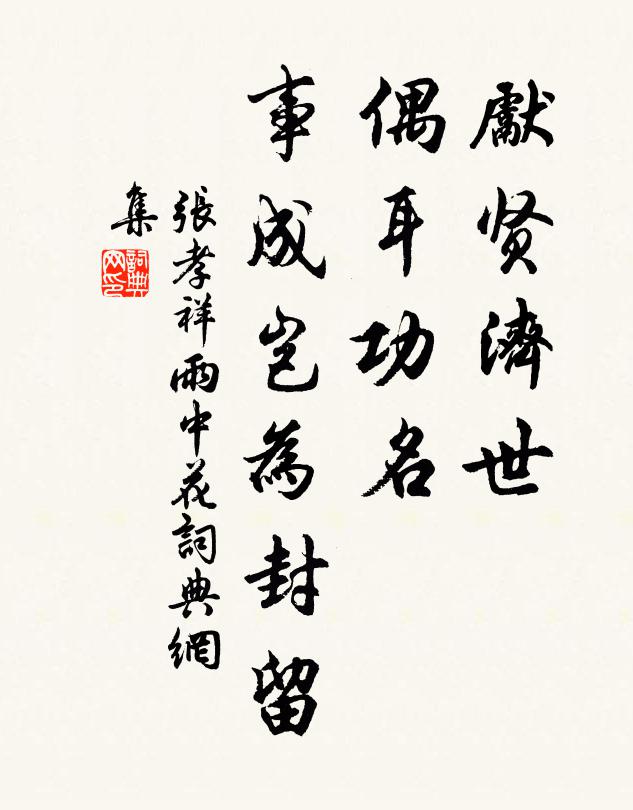 獻贤濟世
偶耳功名
事成岂為封留
張孝祥雨中花詞典網
集
詞典
网印